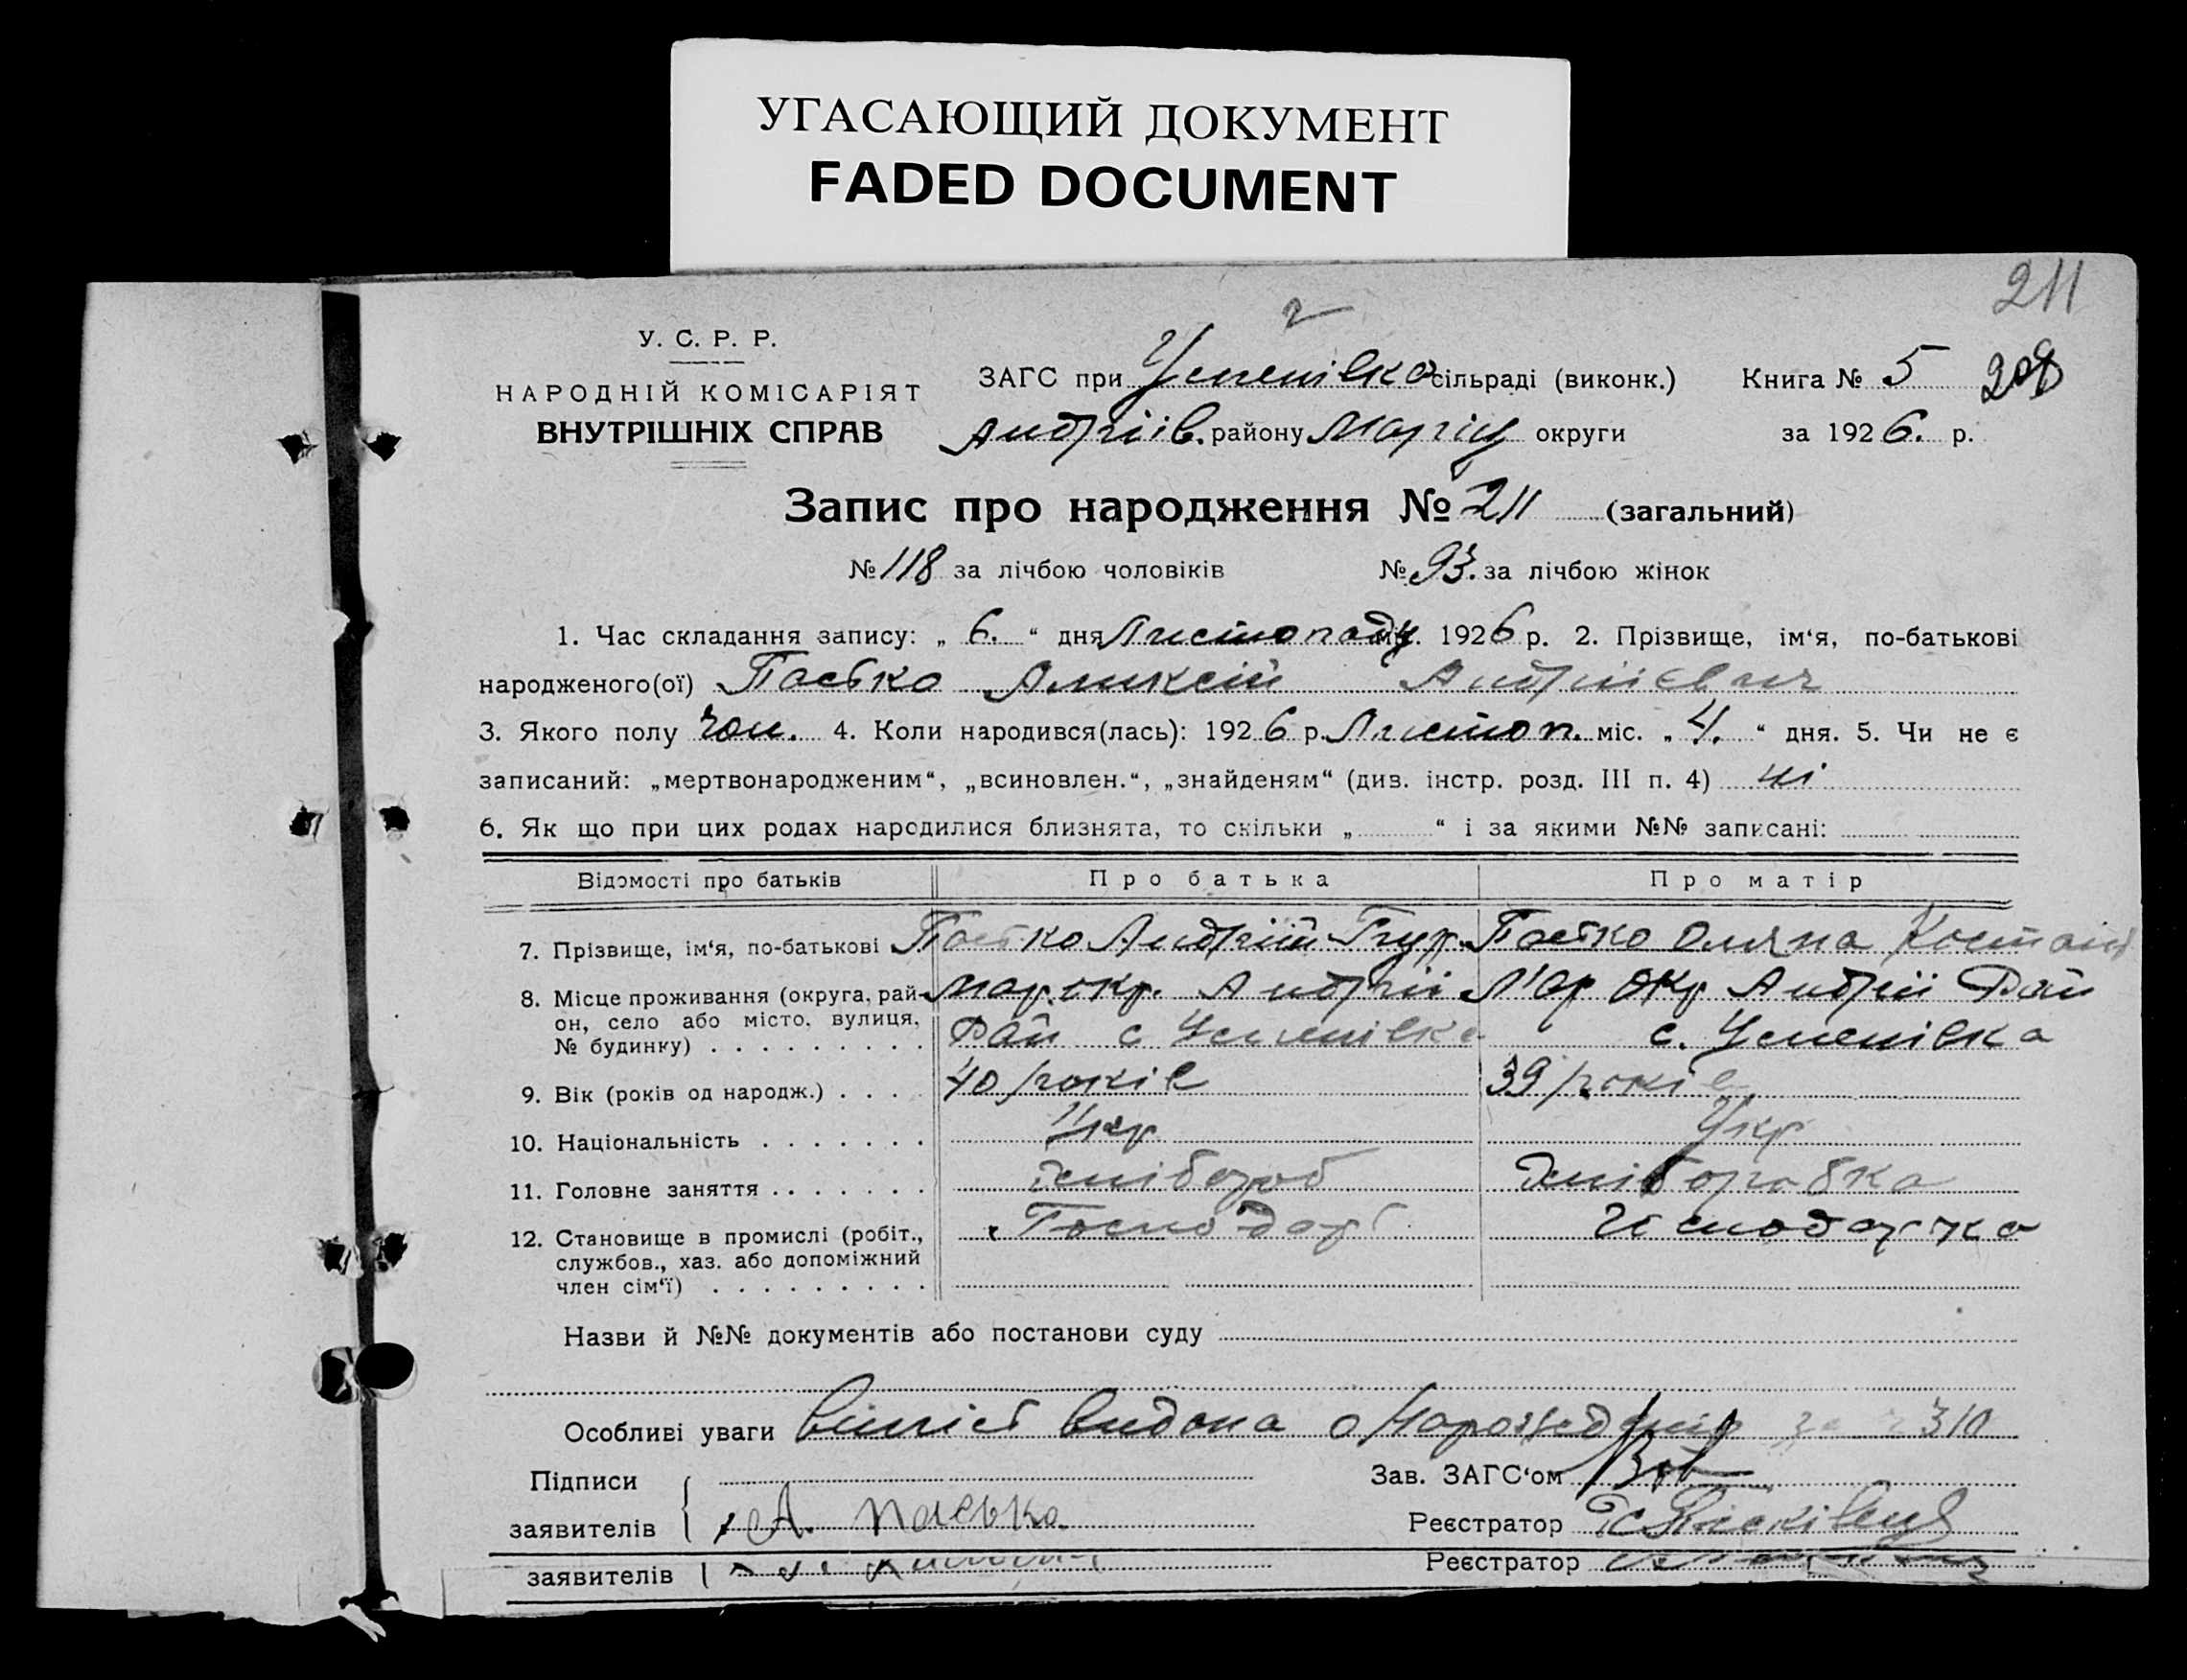 УГАСАЮЩИЙ ДОКУМЕНТ
FADED DOCUMENT
211
У. С. Р. Р.
НАРОДНІЙ КОМІСАРІЯТ
ВНУТРІШНІХ СПРАВ
ЗАГС при Успенівко сільраді (виконк.) Книга № 5 208
Андріїв. району Маріу округи за 1926. р.
Запис про народження № 211 (загальний)
№ 118 за лічбою чоловіків № 93. за лічбою жінок
1. Час складання запису: „ 6. “ дня Листопаду міс. 1926 р. 2. Прізвище, ім‘я, по-батькові
народженого(ої) Пасько Аликсій Андрієвич
3. Якого полу чол. 4. Коли народився(лась): 1926 р. Листоп. міс. „ 4. “ дня. 5. Чи не є
записаний: „мертвонародженим“, „всиновлен.“, „знайденям“ (див. інстр. розд. III п. 4) ні
6. Як що при цих родах народилися близнята, то скільки „ “ і за якими №№ записані:
Відомості про батьків Про батька Про матір
7. Прізвище, ім‘я, по-батькові Пасько Андрій Пасько Оляна Костант
8. Місце проживання (округа, рай- Мар. окр. Андрії Мар Окр Андрії Рай
он, село або місто, вулиця, Рай с Успенівка с. Успенівка
№ будинку)
9. Вік (років од народж.) 40 років 39 років
10. Національність Укр Укр
11. Головне заняття Хлібороб Хліборобка
12. Становище в промислі (робіт., Господарь Господарка
службов., хаз. або допоміжний
член сім‘ї)
Назви й №№ документів або постанови суду
Особливі уваги видана о 310
Підписи Зав. ЗАГС‘ом
заявителів А. Паська Реєстратор
заявителів Реєстратор